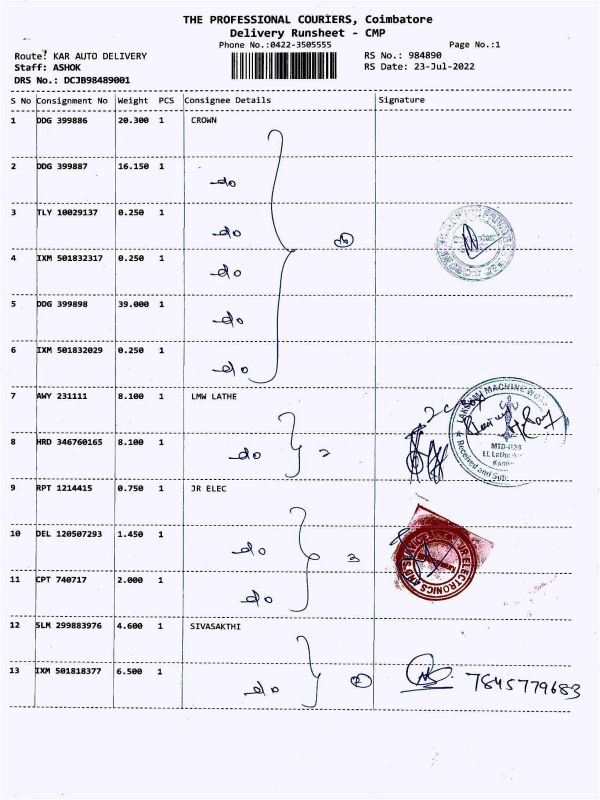 THE PROFESSIONAL COURIERS, Coimbatore
Delivery Runsheet - CMP
Phone No.:0422-3505555 Page No.:1
Route: KAR AUTO DELIVERY RS No.: 984890
Staff: ASHOK RS Date: 23-Jul-2022
DRS No.: DCJB98489001
S No Consignment No Weight PCS Consignee Details Signature
1 DDG 399886 20.300 1 CROWN
2 DDG 399887 16.150 1
do
3 TLY 10029137 0.250 1
do
4 IXM 501832317 0.250 1
do
5 DDG 399898 39.000 1
do
6 IXM 501832029 0.250 1
do
7 AWY 231111 8.100 1 LMW LATHE
LAKSHMI MACHINE WORKS
MTD-
Received and
8 HRD 346760165 8.100 1
do 2
9 RPT 1214415 0.750 1 JR ELEC
10 DEL 120507293 1.450 1
do 3
JR ELECTRONICS AND
11 CPT 740717 2.000 1
do
12 SLM 299883976 4.600 1 SIVASAKTHI
13 IXM 501818377 6.500 1
do 2 7845779683